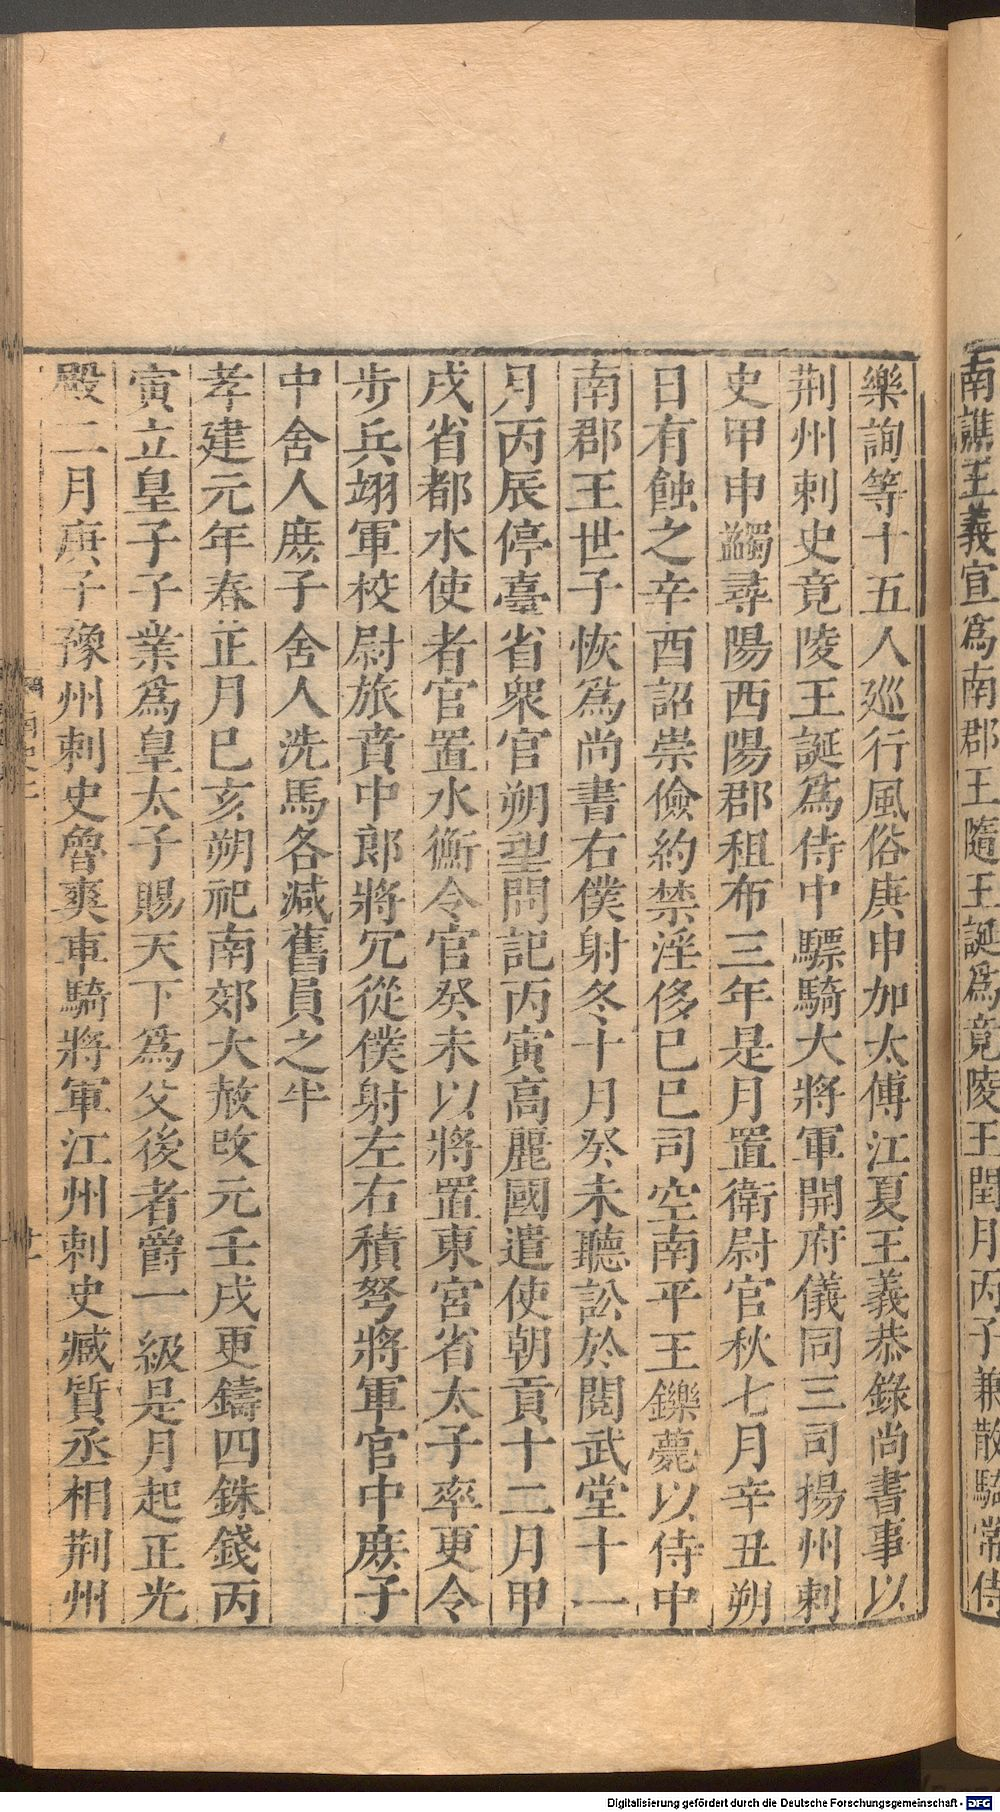 南譙王義宣爲南郡王隨王誕爲竟陵王閏月丙子兼散騎常侍
樂詢等十五人巡行風俗庚申加太傅江夏王義恭錄尚書事以
荆州刺史竟陵王誕爲侍中驃騎大將軍開府儀同三司揚州刺
史甲申蠲尋陽西陽郡租布三年是月置衛尉官秋七月辛丑朔
日有蝕之辛酉詔崇儉約禁淫侈已巳司空南平王鑠薨以侍中
南郡王世子恢爲尚書右僕射冬十月癸未聽訟於閱武堂十一
月丙辰停臺省衆官朔望問記丙寅高麗國遣使朝貢十二月甲
戌省都水使者官置水衡令官癸未以將置東宮省太子率更令
步兵翊軍校尉旅賁中郎將冗從僕射左右積弩將軍官中庶子
中舍人庶子舍人洗馬各減舊員之半
孝建元年春正月已亥朔祀南郊大赦改元壬戌更鑄四銖錢丙
寅立皇子子業爲皇太子賜天下爲父後者爵一級是月起正光
殿二月庚子豫州刺史魯爽車騎將軍江州刺史臧質丞相荆州
Digitalisierung gefördert durch die Deutsche Forschungsgemeinschaft - DFG